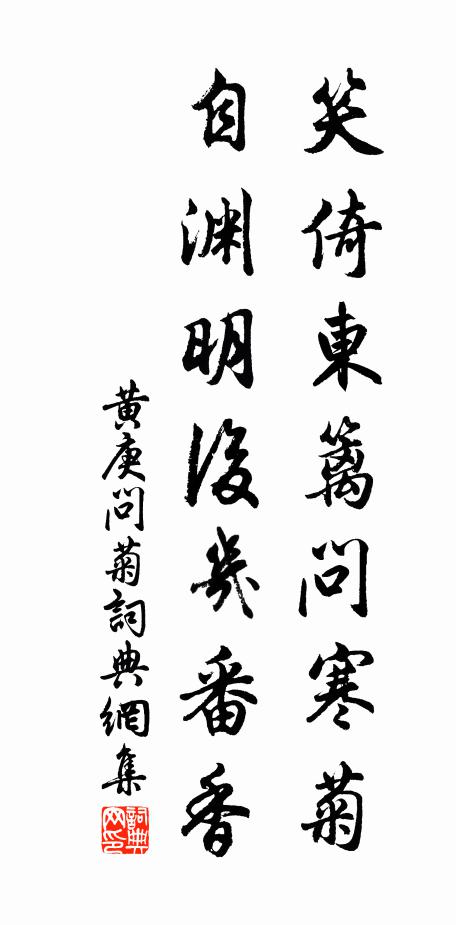 笑倚東籬問寒菊
自淵明後幾番香
黃庚問菊詞典網集
詞典網印